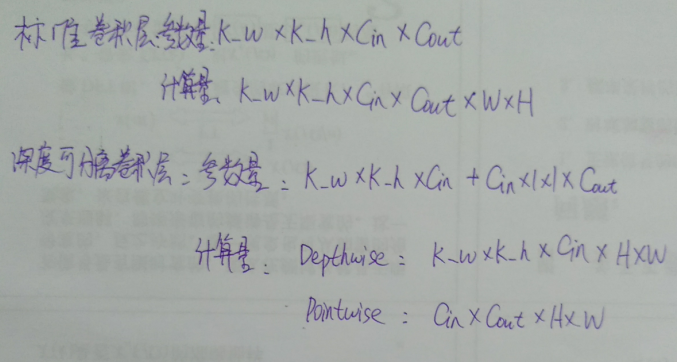 标准卷积层参数量:K_w×K_h×Cin×Cout
计算量:K_w×K_h×Cin×Cout×W×H
深度可分离卷积层:参数量:K_w×K_h×Cin+Cin×1×1×Cout
计算量:Depthwise:K_w×K_h×Cin×H×W
Pointwise:Cin×Cout×H×W